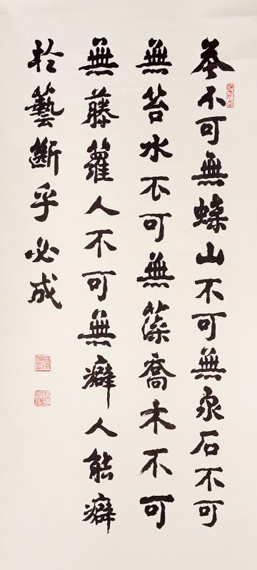 花不可無蝶山不可無泉石不可
無苔水不可無藻喬木不可
無藤蘿人不可無癖人能癖
於藝斷乎必成